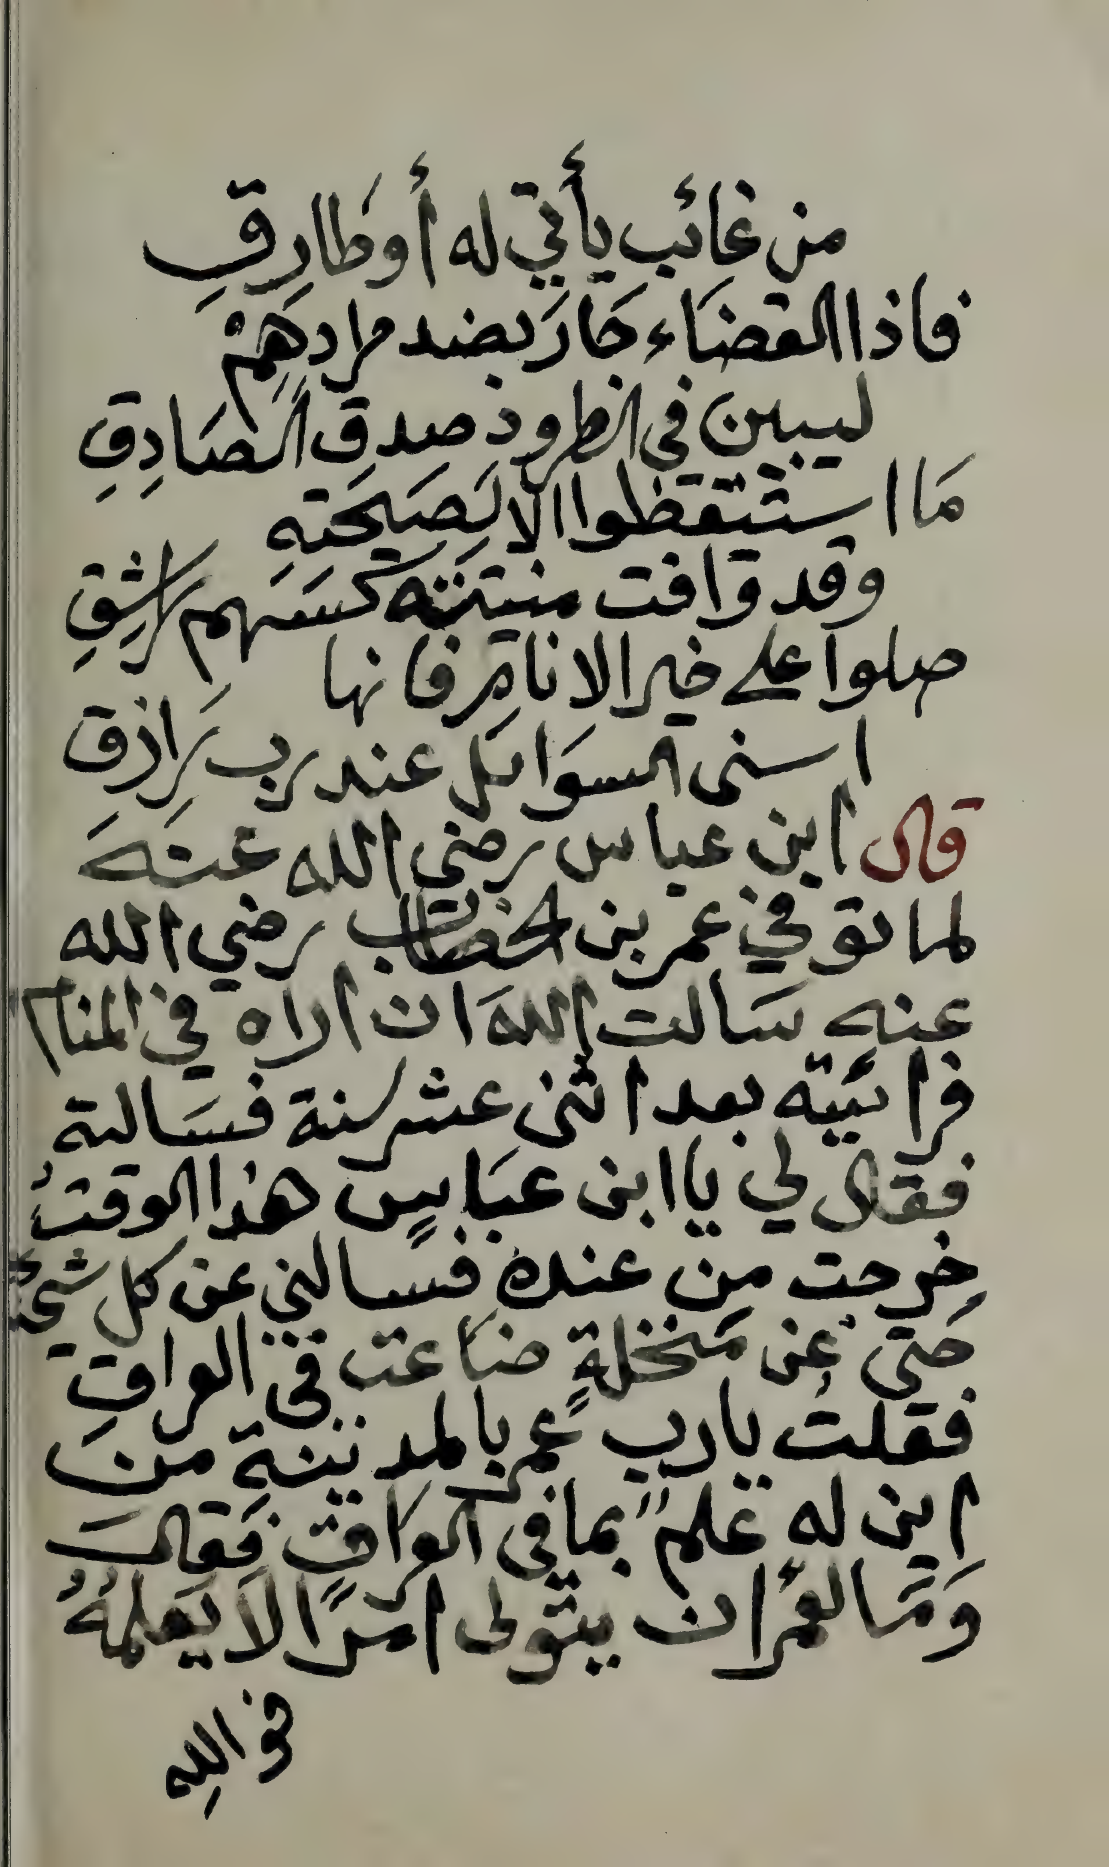 من غائب يأتي له أو طارق
فاذا القضاء جار بضد مرادهم
ليبين في انظروذ صدق الصادق
ما استيقظوا الا لصيحته
وقد وافت منيته كسهم راشق
صلوا على خير الانام فانها
اسنى الوسائل عند رب رازق
قال ابن عباس رضي الله عنه
لما توفي عمر بن الخطاب رضي الله
عنه سالت الله ان اراه في المنام
فرائيته بعد اثنى عشر سنة فسالته
فقال لي يا ابن عباس هذا الوقت
خرجت من عنده فسالني عن كل شيء
حتى عن منخلة ضاعت في العراق
فقلت يارب عمر بالمدينة من
اين له علم بما في العراق فقال
وما لعمر ان يتولى امرا لا يعلمه
فوالله